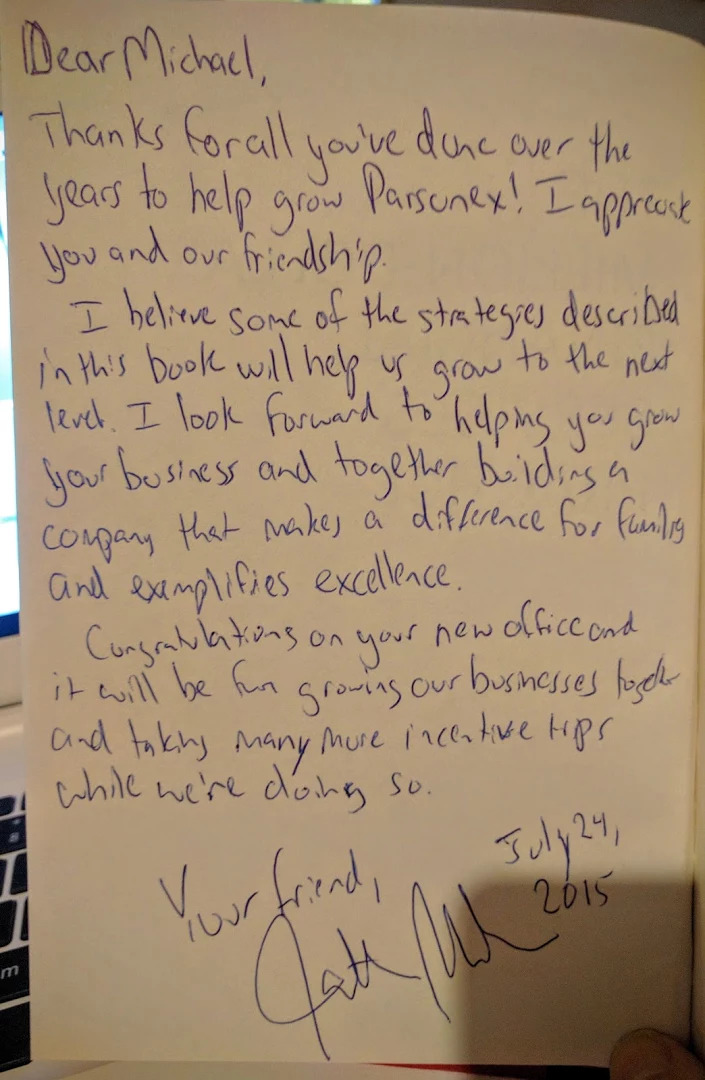 Dear Michael,
Thanks for all you've done over the
years to help grow Parsonex! I appreciate
you and our friendship.
I believe some of the strategies described
in this book will help us grow to the next
level. I look forward to helping you grow
your business and together building a
company that makes a difference for family
and exemplifies excellence.
Congratulations on your new office and
it will be fun growing our businesses together
and taking many more incentive trips
while we're doing so.
Your friend,
July 24,
2015
m